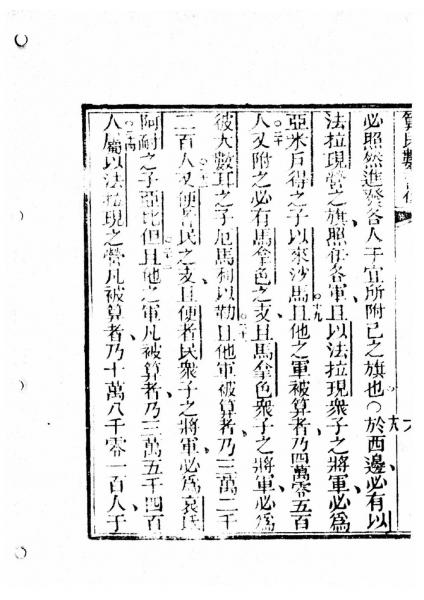 必照然進發各人于宜所附己之旗也○於西邊必有以
法拉現營之旗照伊各軍且以法拉現衆子之將軍必爲
○十九
亞米戶得之子以來沙馬且他之軍被算者乃四萬零五百
○二十
人又附之必有馬拿色之支且馬拿色衆子之將軍必爲
彼大數耳之子厄馬利以勒且他軍被算者乃三萬二千
二百人又便者民之支且便者民衆子之將軍必爲
阿耐之子亞比但且他之軍凡被算者乃三萬五千四百
○二十四
人屬以法拉現之營凡被算者乃十萬八千零一百人于